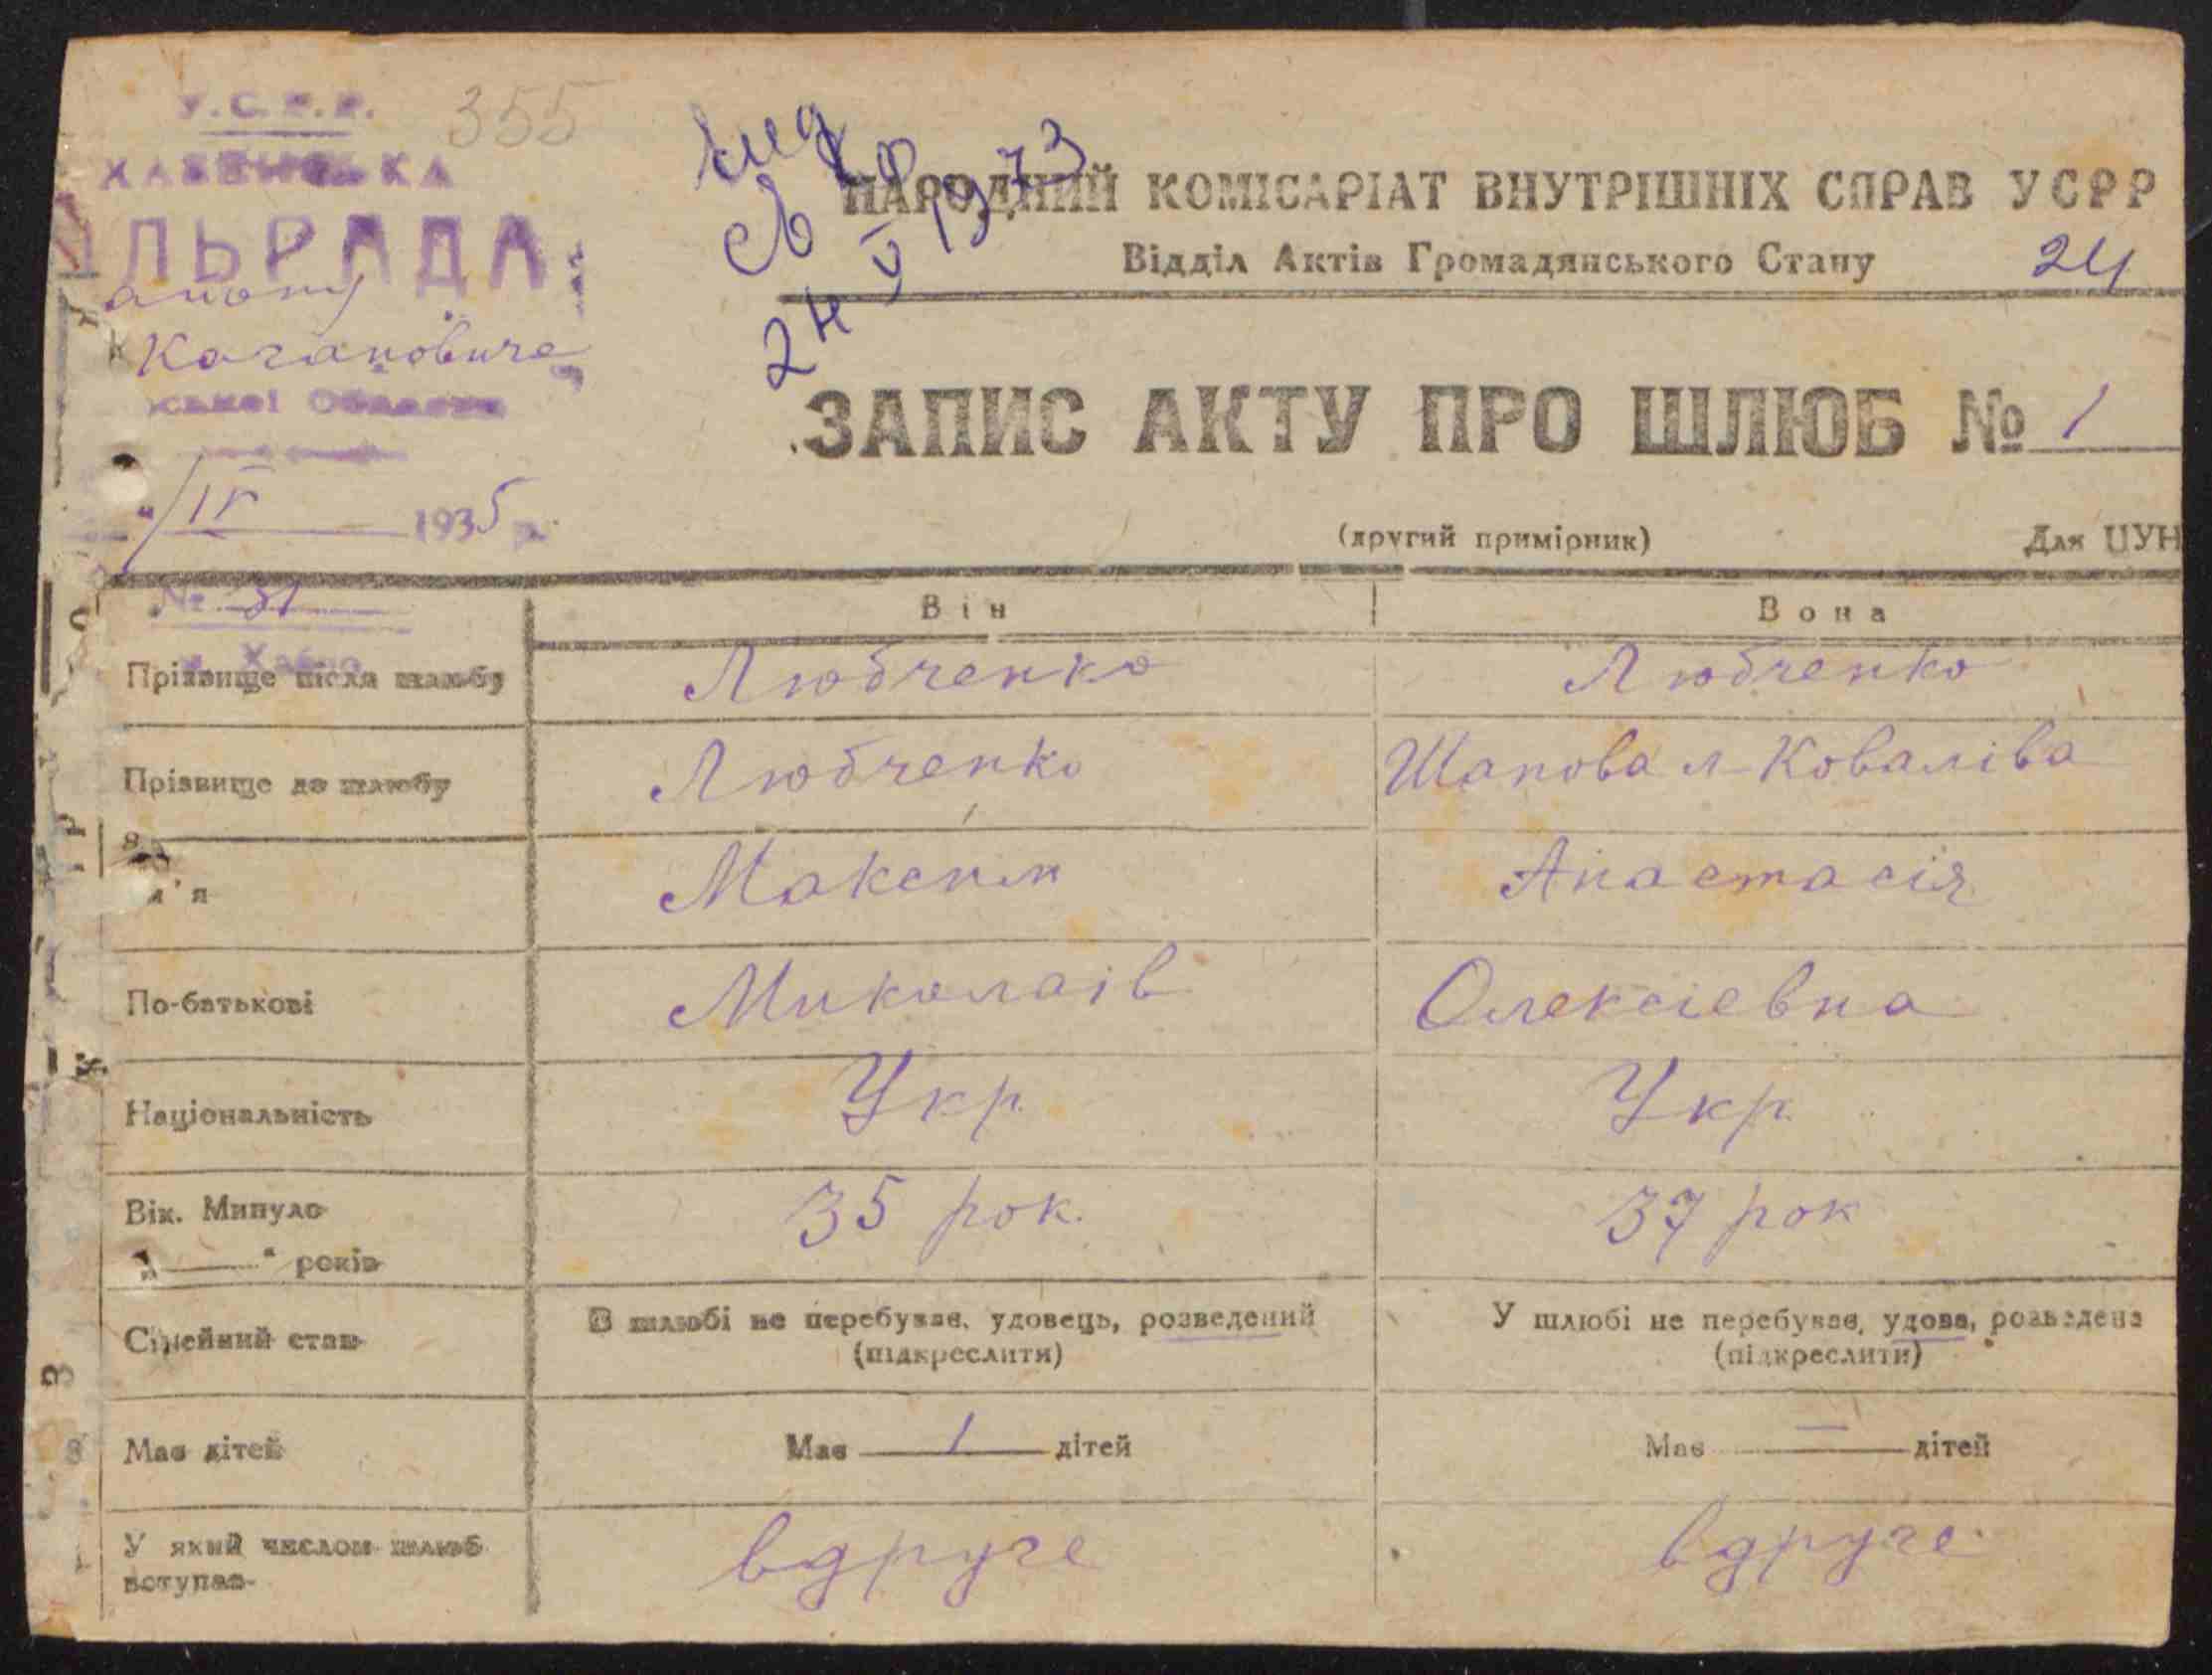 У.С.Р.Р.
355
ХАБЕНСЬКА
ЛЬРАДА
Кагановича
ської Області
"/IV 1935 р.
№ 31
м. Хабно
24 V 1973
НАРОДНИЙ КОМІСАРІАТ ВНУТРІШНІХ СПРАВ УСРР
Відділ Актів Громадянського Стану 24
ЗАПИС АКТУ ПРО ШЛЮБ № 1
(другий примірник) Для ЦУН
Він Вона
Прізвище після шлюбу Любченко Любченко
Прізвище до шлюбу Любченко Шаповал-Ковалiва
м'я Максим Анастасія
По-батькові Миколаів Олексіевна
Національність Укр. Укр.
Вік. Минуло 35 рок. 37 рок
„ — “ років
Сімейний стан В шлюбі не перебував, удовець, розведений У шлюбі не перебував, удова, розведена
(підкреслити) (підкреслити)
Має дітей Має 1 дітей Має — дітей
У який числом шлюб вдруге вдруге
вступає